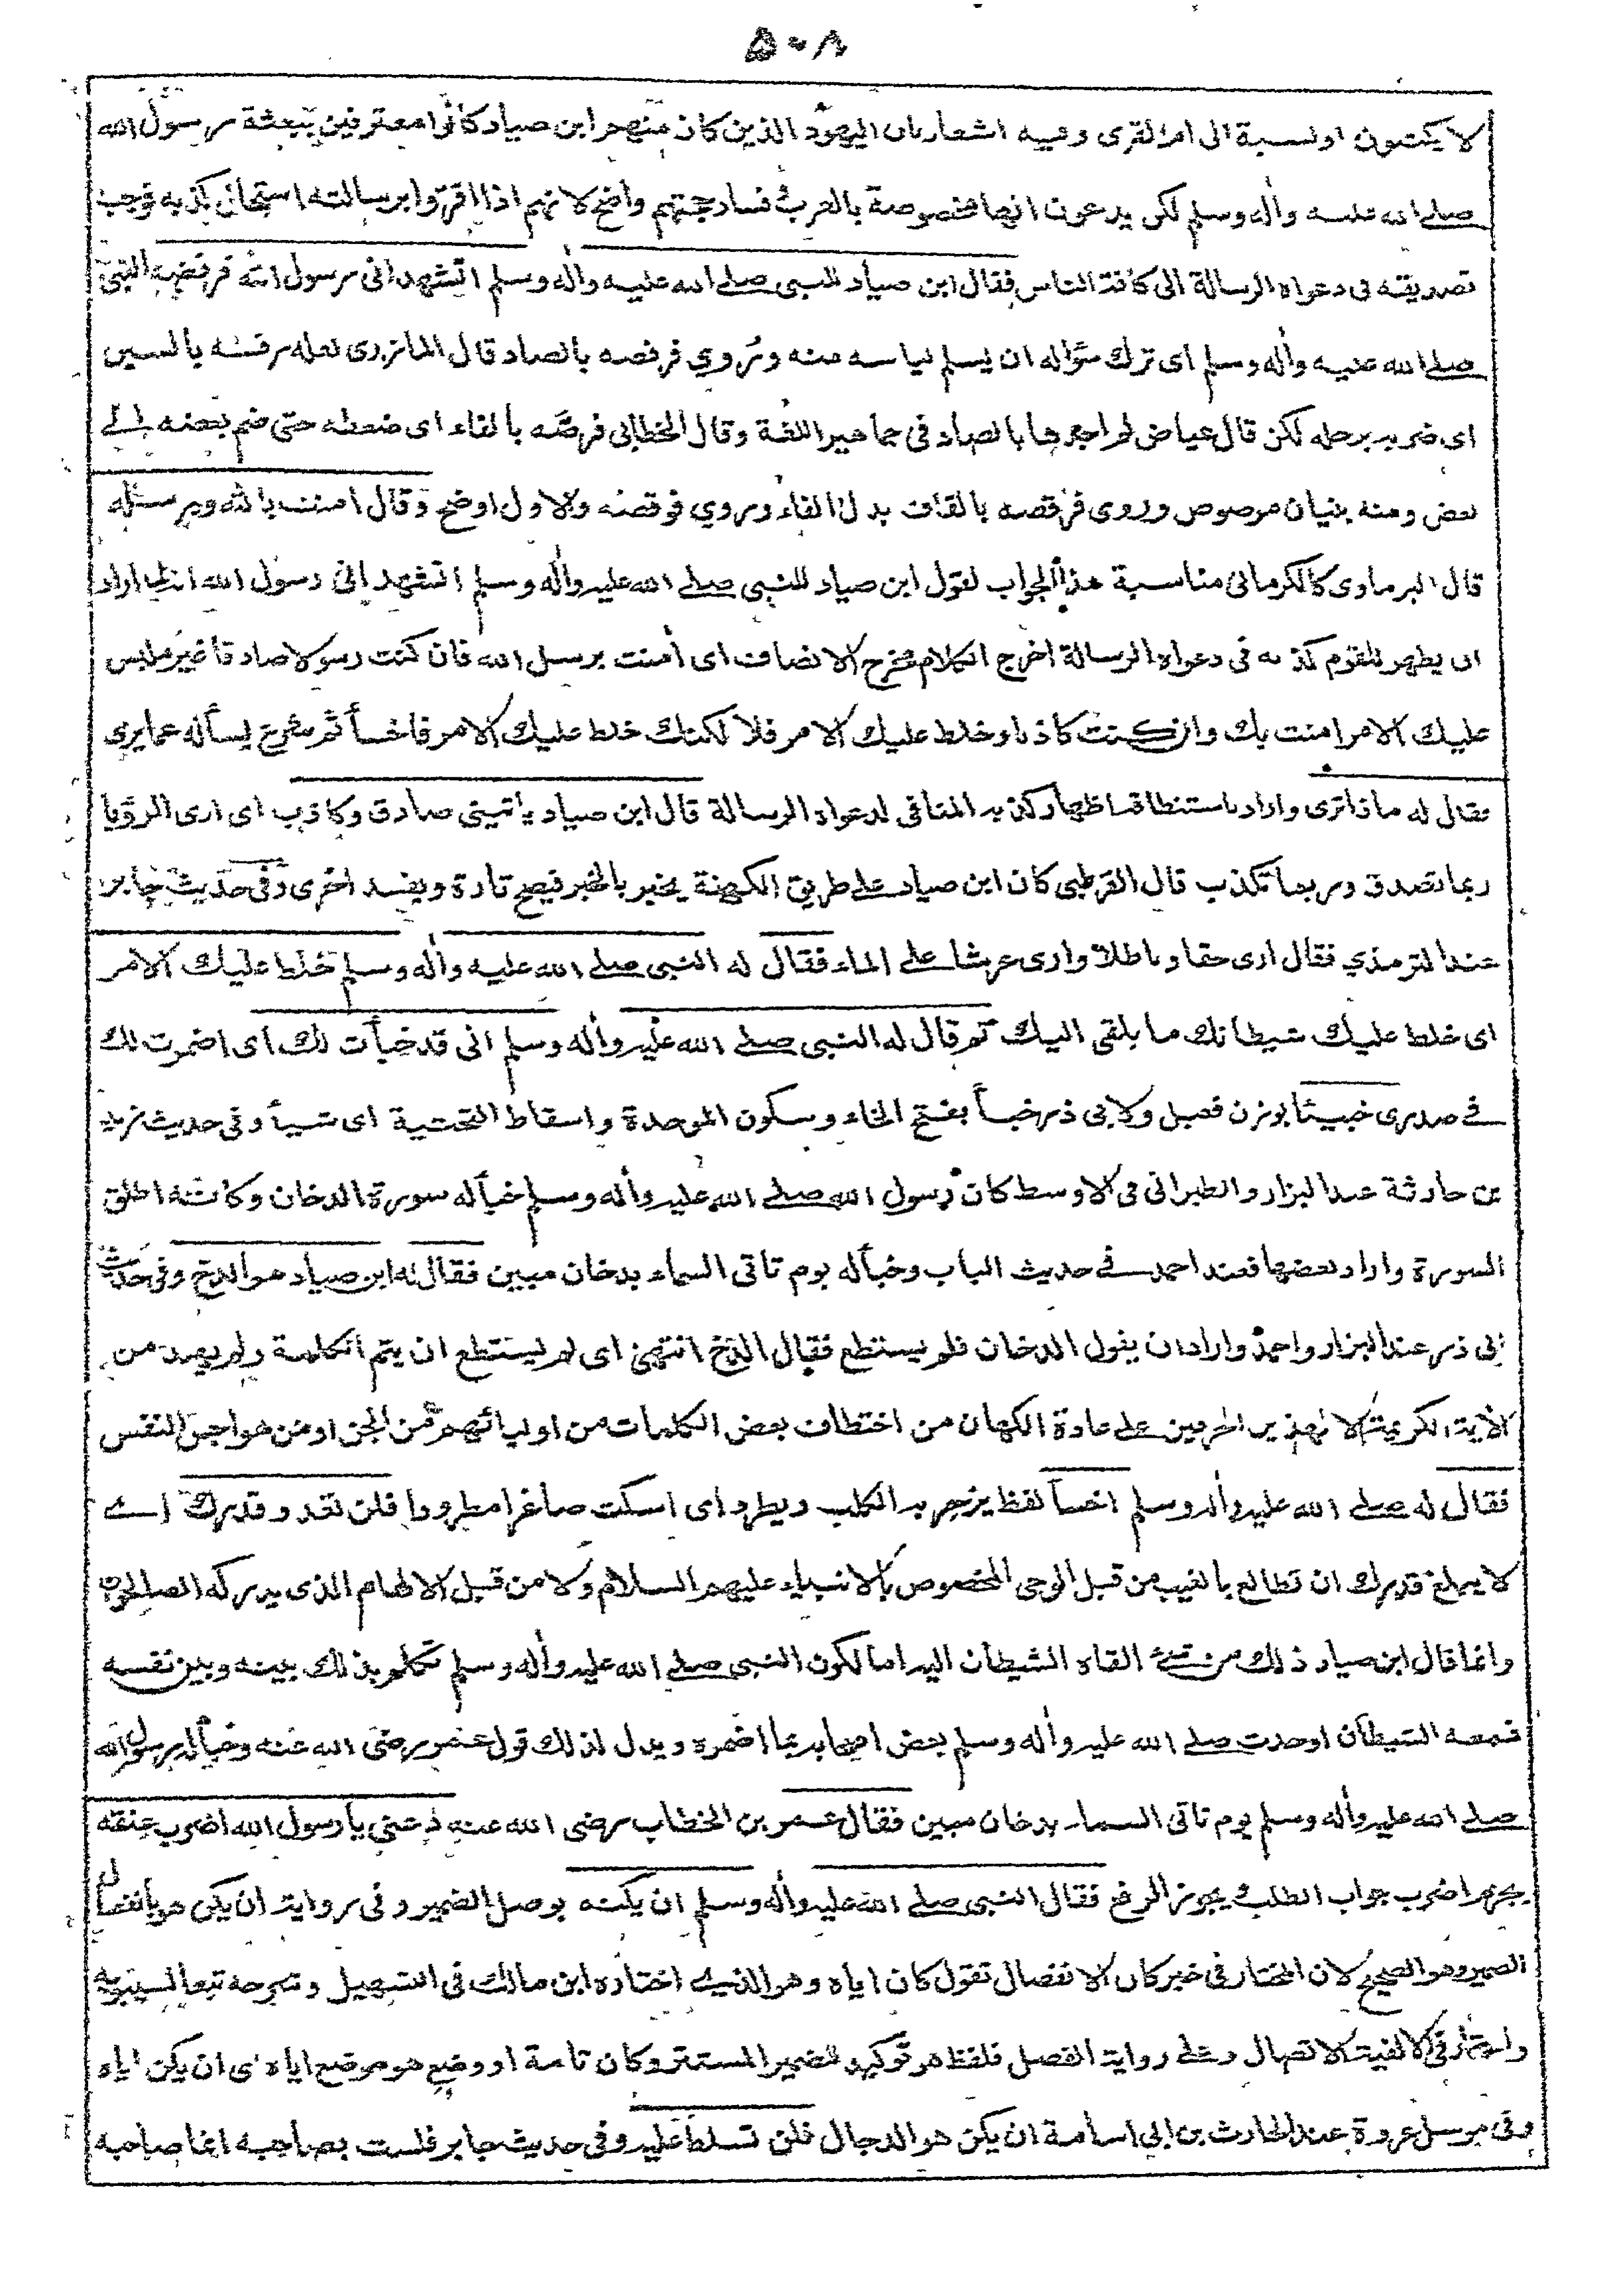 ٥٠٨
لا يكتبون او نسبة الى ام القرى وفيه اشعار بان اليهود الذين كان منهم ابن صياد كانوا معترفين ببعثة رسول الله
صلے الله عليه واٰله وسلم لكن يدعون انها مخصوصة بالعرب فساد حجتهم واضح لانهم اذا اقروا برسالته استحال كذبه فوجب
تصديقه فى دعواه الرسالة الى كافة الناس فقال ابن صياد للنبى صلے الله عليه واٰله وسلم اتشهد انى رسول الله فرفضه النبى
صلے الله عليه واٰله وسلم اى ترك سؤاله ان يسلم لياسه منه وروي فرفصه بالصاد قال المازرى لعله رفسه بالسين
اى ضربه برجله لكن قال عياض لم اجدها بالصاد فى جماهير اللغة وقال الخطابى فرصه بالفاء اى ضغطه حتى ضم بعضه الے
بعض ومنه بنيان مرصوص وروى فرقصه بالقاف بدل الفاء وروي فوقصه والاول اوضح وقال امنت بالله وبرسله
قال البرماوى كالكرمانى مناسبة هذا الجواب لقول ابن صياد للنبى صلے الله عليه واٰله وسلم اتشهد انى رسول الله انه لما اراد
ان يظهر للقوم كذبه فى دعواه الرسالة اخرج الكلام مخرج الانصاف اى اٰمنت برسل الله فان كنت رسولا صادقا غير ملبس
عليك الامر امنت بك وان كنت كاذبا وخلط عليك الامر فلا لكنك خلط عليك الامر فاخسأ ثم شرع يسأله عما يرى
فقال له ماذا ترى واراد باستنطاقه اظهار كذبه المنافى لدعواه الرسالة قال ابن صياد ياتينى صادق وكاذب اى ارى الرؤيا
ربما تصدق وربما تكذب قال القرطبى كان ابن صياد علے طريق الكهنة يخبر بالخبر فيصح تارة ويفسد اخرى وفى حديث جابر
عند الترمذي فقال ارى حقا وباطلا وارى عرشا على الماء فقال له النبى صلے الله عليه واٰله وسلم خلط عليك الامر
اى خلط عليك شيطانك ما يلقى اليك ثم قال له النبى صلے الله عليه واٰله وسلم انى قد خبأت لك اى اضمرت لك
فے صدرى خبيئا بوزن فعيل ولابى ذر خبأ بفتح الخاء وسكون الموحدة واسقاط التحتية اى شيأ وفى حديث زيد
بن حارثة عند البزار والطبرانى فى الاوسط كان رسول الله صلے الله عليه واٰله وسلم خبأ له سورة الدخان وكانه اطلق
السورة واراد بعضها فعند احمد فے حديث الباب وخبأ له يوم تاتى السماء بدخان مبين فقال له ابن صياد هو الدخ وفى حديث
ابى ذر عند البزار واحمد واراد ان يقول الدخان فلم يستطع فقال الدخ انتهى اى لم يستطع ان يتم الكلمة ولم يهتد من
الاٰية الكريمة الا لهذين الحرفين علے عادة الكهان من اختطاف بعض الكلمات من اوليائهم من الجن او من هواجس النفس
فقال له صلے الله عليه واٰله وسلم اخسأ لفظ يزجر به الكلب ويطرد اى اسكت صاغرا مطرودا فلن تعدو قدرك اے
لا يبلغ قدرك ان تطالع بالغيب من قبل الوحى المخصوص بالانبياء عليهم السلام ولا من قبل الالهام الذى يدركه الصالحون
وانما قال ابن صياد ذلك من شئ القاه الشيطان اليه اما لكون النبى صلے الله عليه واٰله وسلم تكلم بذلك بينه وبين نفسه
فسمعه الشيطان او حدث صلے الله عليه واٰله وسلم بعض اصحابه بما اضمره ويدل لذلك قول عمر رضى الله عنه وخبأ له رسول الله
صلے الله عليه واٰله وسلم يوم تاتى السماء بدخان مبين فقال عمر بن الخطاب رضى الله عنه دعني يا رسول الله اضرب عنقه
بجزم اضرب جواب الطلب ويجوز الرفع فقال النبى صلے الله عليه واٰله وسلم ان يكنه بوصل الضمير وفى رواية ان يكن هو بانفصال
الضمير وهو الصحيح لان المختار فى خبر كان الانفصال تقول كان اياه وهو الذى اختاره ابن مالك فى التسهيل وشرحه تبعا لسيبويه
واختار فى الالفية الاتصال وعلى رواية الفصل فلفظ هو توكيد للضمير المستتر وكان تامة او وضع هو موضع اياه اى ان يكن اياه
وفى مرسل عروة عند الحارث بن ابى اسامة ان يكن هو الدجال فلن تسلط عليه وفى حديث جابر فلست بصاحبه انما صاحبه